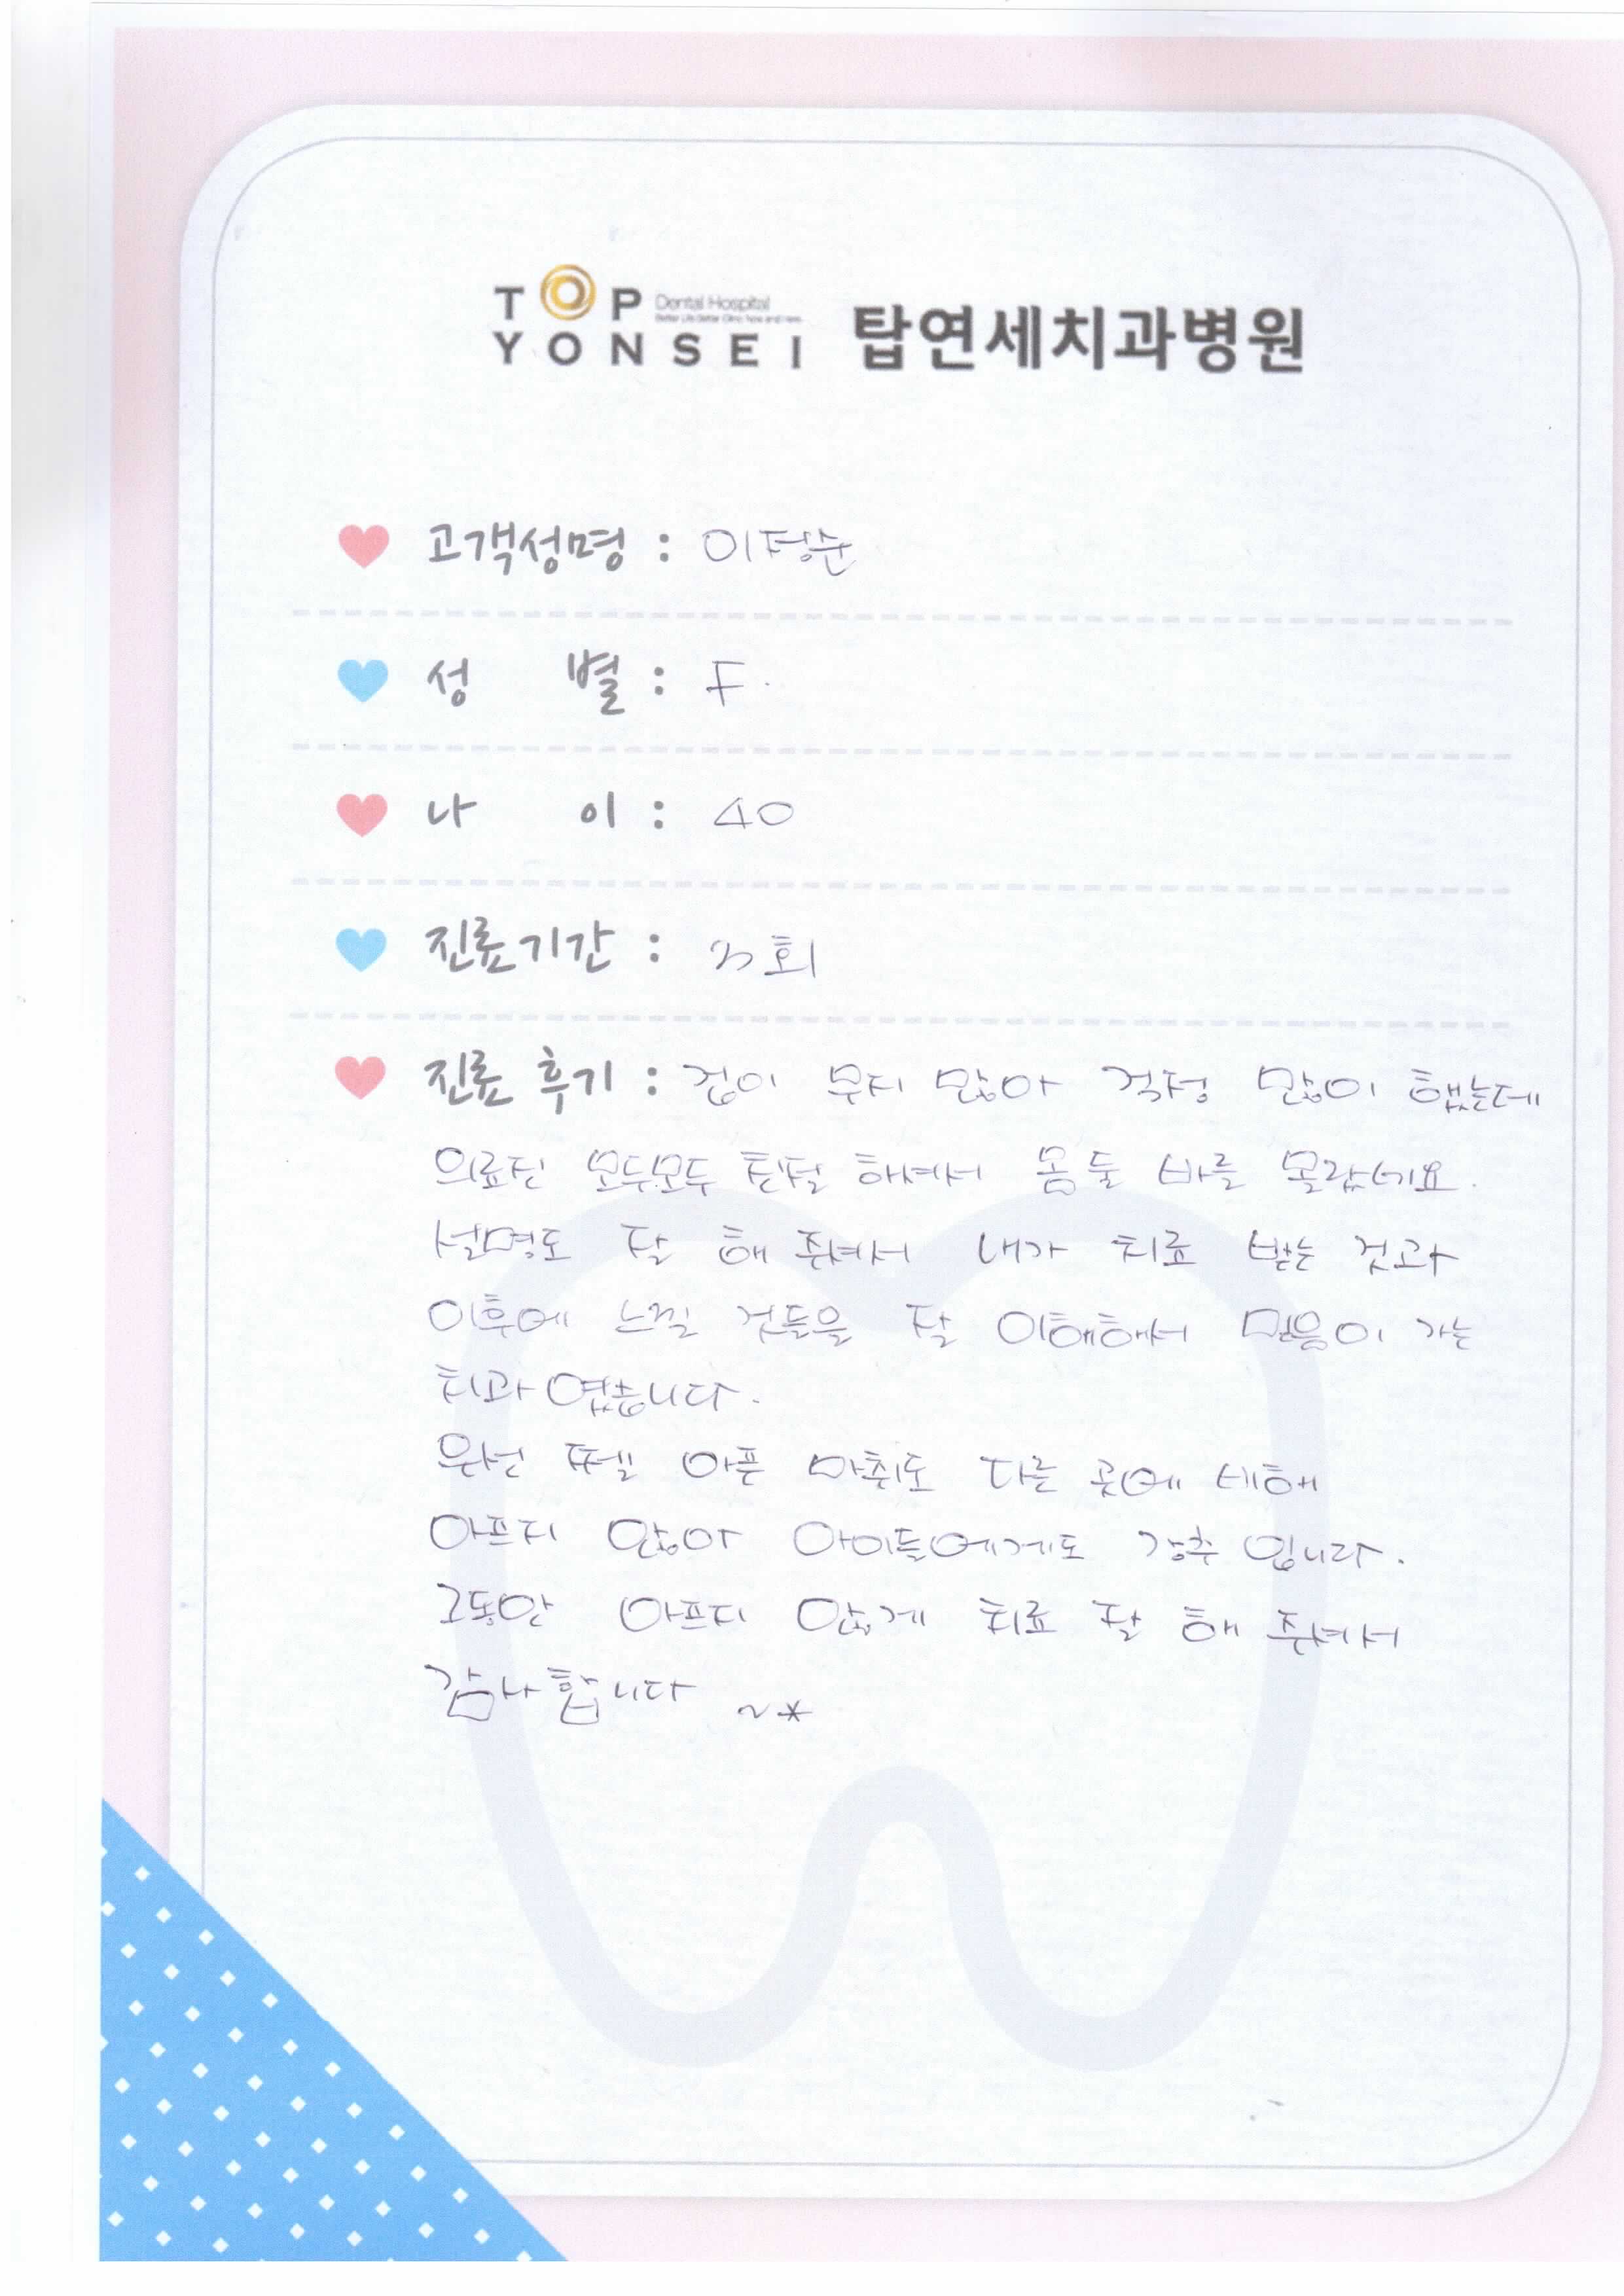 TOP Dental Hospital
YONSEI 탑연세치과병원
고객성명 : 이정순
성 별 : F.
나 이 : 40
진료기간 : 3회
진료 후기 : 겁이 무지 많아 걱정 많이 했는데
의료진 모두모두 친절 하셔서 몸 둘 바를 몰랐네요.
설명도 잘 해 주셔서 내가 치료 받는 것과
이후에 느낄 것들을 잘 이해해서 믿음이 가는
치과 였습니다.
우선 쩰 아픈 마취도 다른 곳에 비해
아프지 않아 아이들에게도 강추 입니다.
그동안 아프지 않게 치료 잘 해 주셔서
감사합니다 ~*